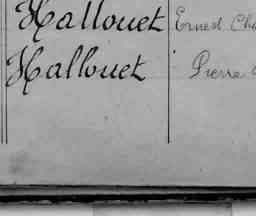 Hallouet Ernest
Hallouet Pierre